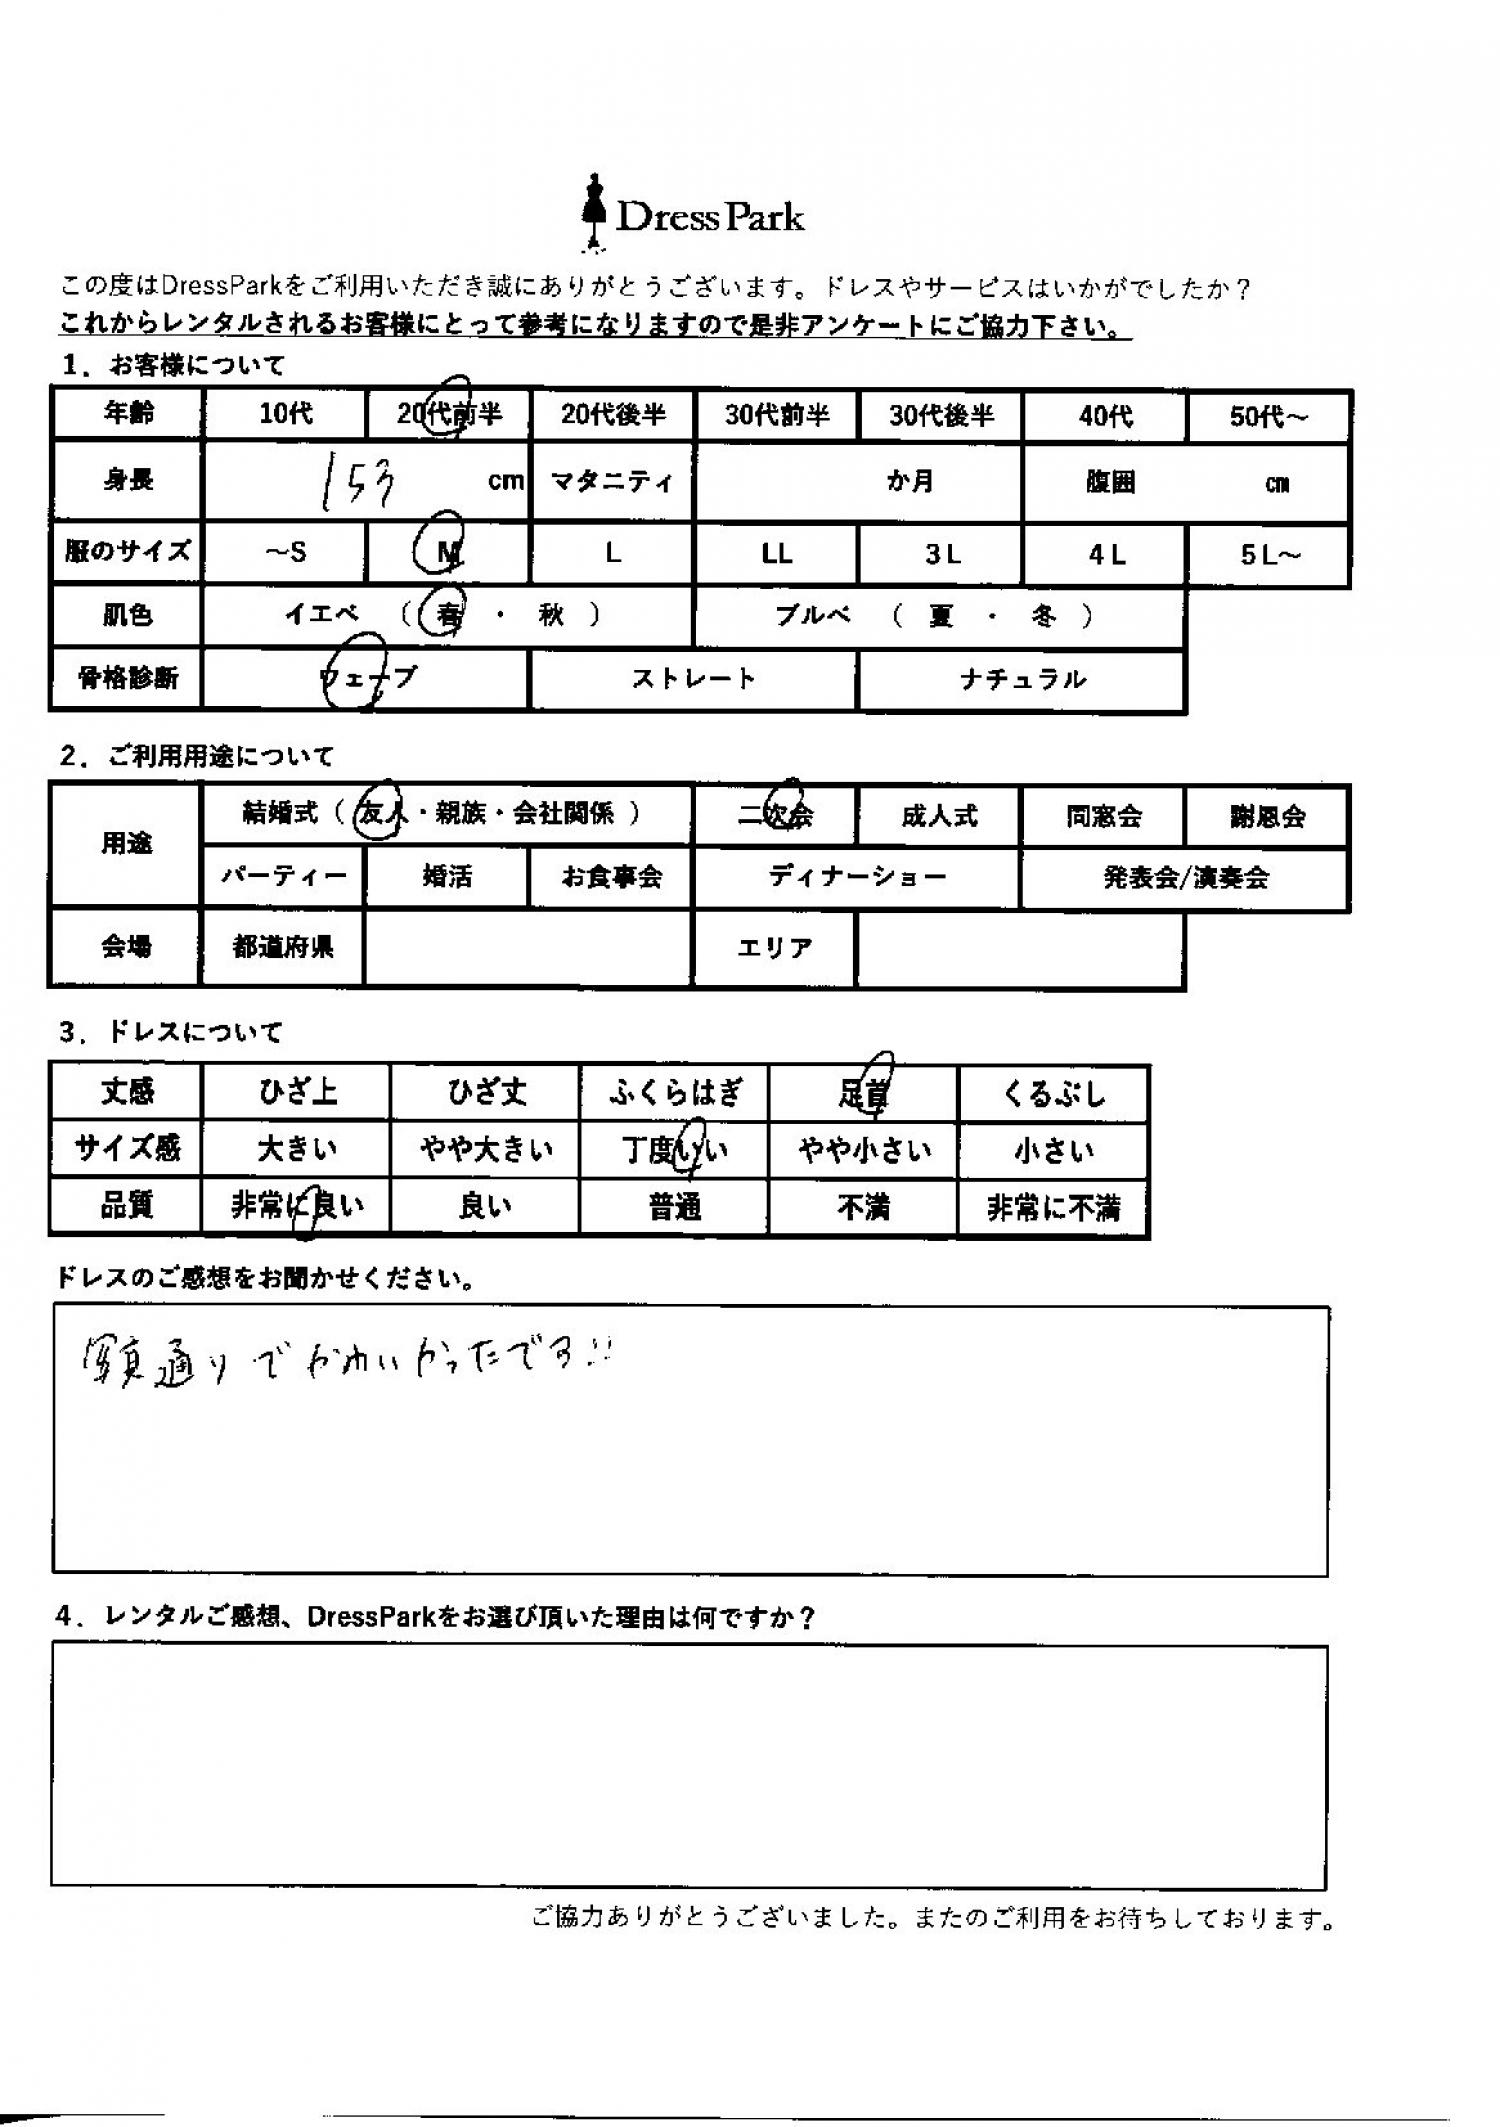 Dress Park
この度はDressParkをご利用いただき誠にありがとうございます。ドレスやサービスはいかがでしたか？
これからレンタルされるお客様にとって参考になりますので是非アンケートにご協力下さい。
1．お客様について
年齢 10代 20代前半 20代後半 30代前半 30代後半 40代 50代～
身長 153 cm マタニティ か月 腹囲 ㎝
服のサイズ ～S M L LL 3L 4L 5L～
肌色 イエベ （ 春 ・ 秋 ） ブルベ （ 夏 ・ 冬 ）
骨格診断 ウェーブ ストレート ナチュラル
2．ご利用用途について
用途 結婚式（ 友人・親族・会社関係 ） 二次会 成人式 同窓会 謝恩会
パーティー 婚活 お食事会 ディナーショー 発表会/演奏会
会場 都道府県 エリア
3．ドレスについて
丈感 ひざ上 ひざ丈 ふくらはぎ 足首 くるぶし
サイズ感 大きい やや大きい 丁度いい やや小さい 小さい
品質 非常に良い 良い 普通 不満 非常に不満
ドレスのご感想をお聞かせください。
写真通りでかわいかったです!!
4．レンタルご感想、DressParkをお選び頂いた理由は何ですか？
ご協力ありがとうございました。またのご利用をお待ちしております。